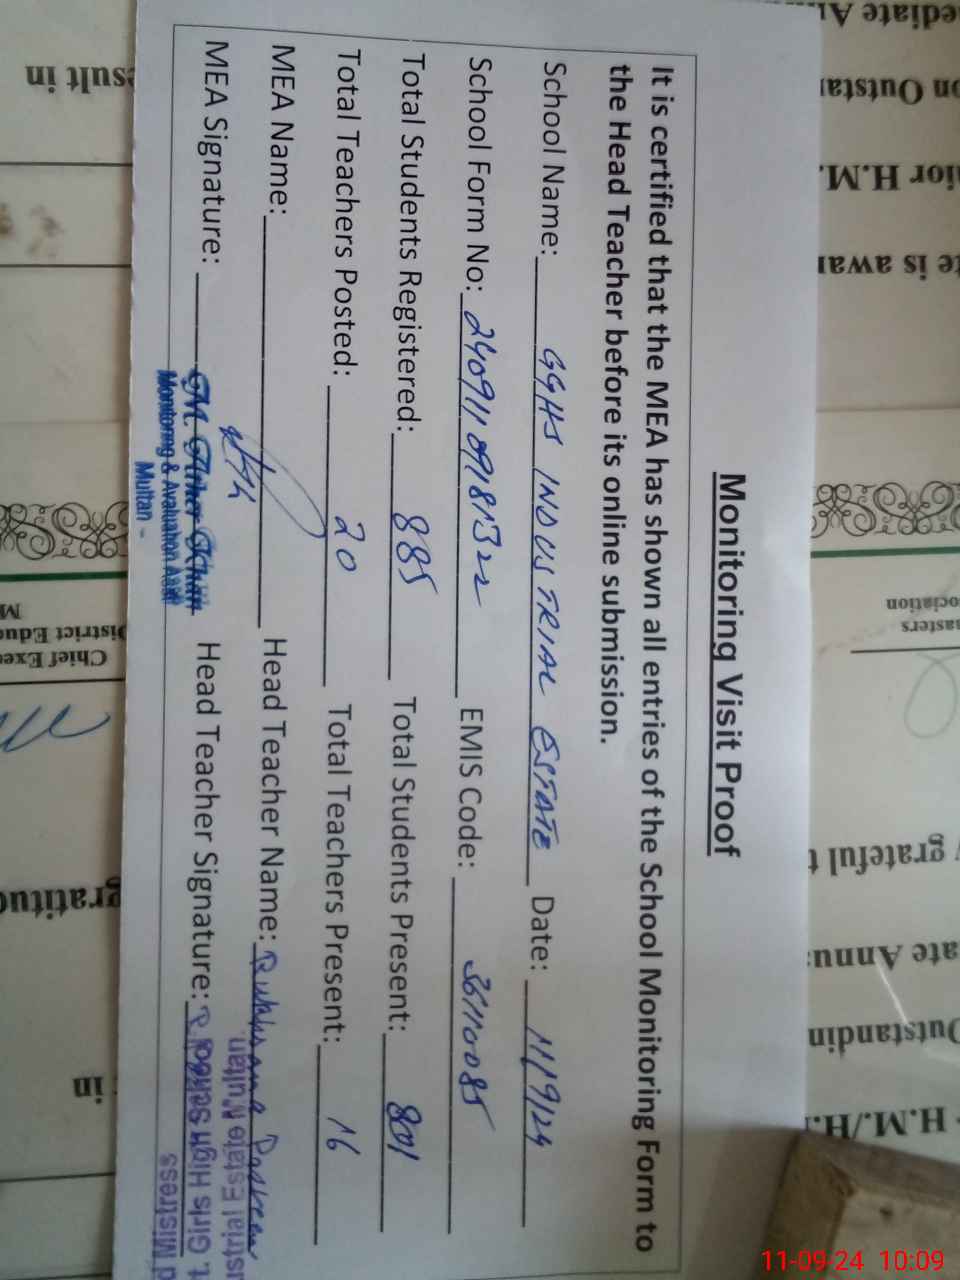 Monitoring Visit Proof
It is certified that the MEA has shown all entries of the School Monitoring Form to
the Head Teacher before its online submission.
School Name: GGHS INDUSTRIAL ESTATE Date: 11/9/24
School Form No: EMIS Code: 36110085
Total Students Registered: 885 Total Students Present: 801
Total Teachers Posted: 20 Total Teachers Present: 16
MEA Name: Head Teacher Name: Rukhsana Parveen
MEA Signature: Head Teacher Signature:
Monitoring & Evaluation Asstt
Multan
d Mistress
t. Girls High School
ustrial Estate Multan
sult in
gratitud
Chief Exec
District Educ
ediate
on Outstan
nior H.M.
te is awar
asters
ociation
grateful t
ate Annu
Outstandin
H.M./H.
in
11-09-24 10:09